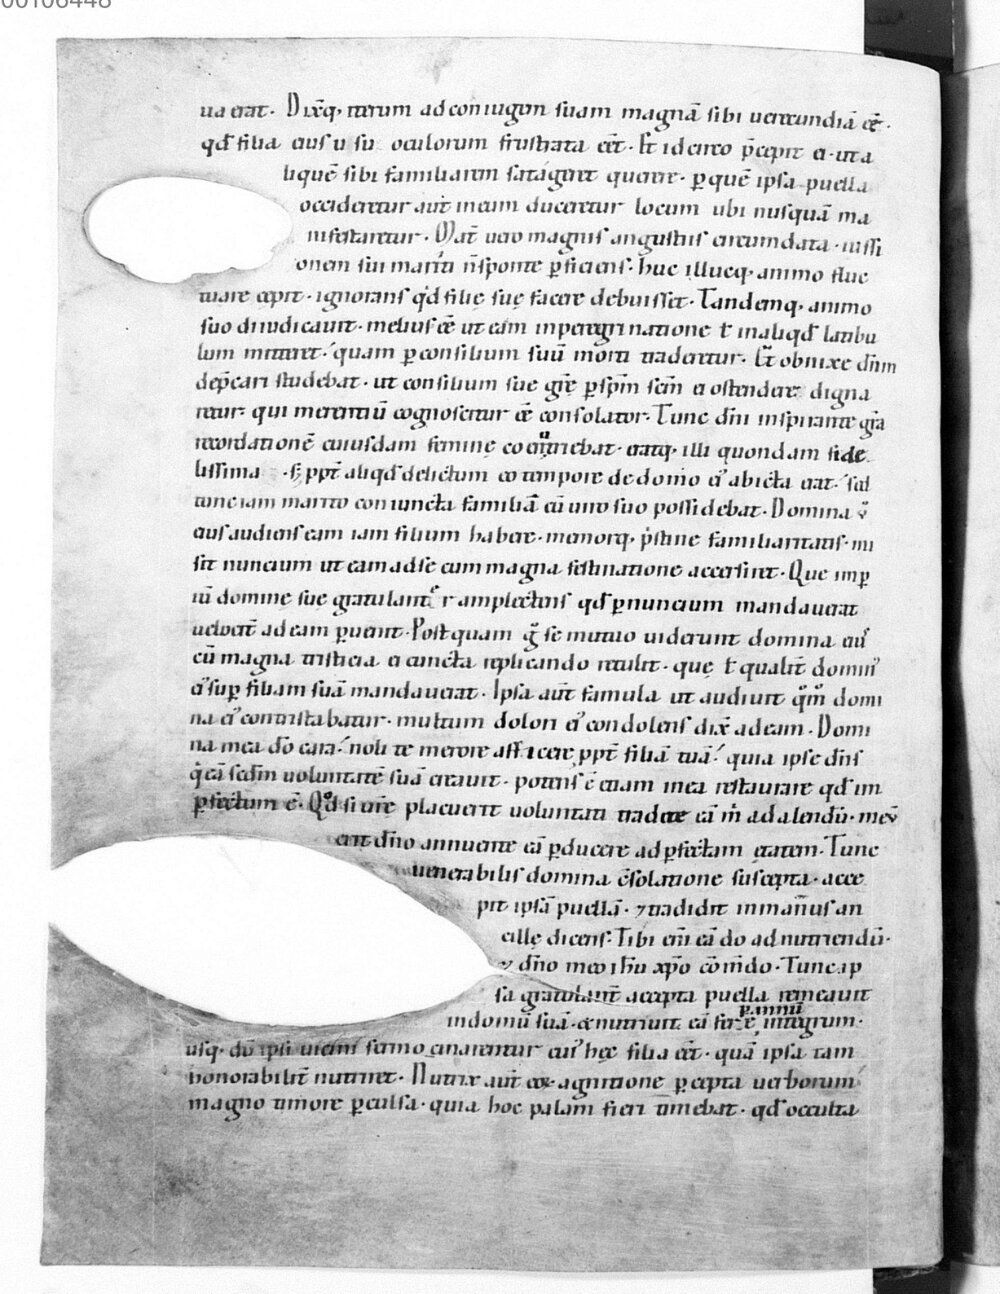 00106448
ua erat. Dixq; iterum ad coniugem suam magnā sibi uerecundiā eē.
qd̄ filia eius uisu oculorum frustrata eēt. Et idcirco p̄cepit ei. ut a
liquē sibi familiarem satageret querere. per quē ipsa puella
occideretur aut̄ in eum duceretur locum ubi nusquā ma
nifestaretur. Mat̄ uero magnis angustiis circumdata. iussi
onem sui mariti n̄ sponte p̄ficiens. huc illucq; animo fluc
tuare cepit. ignorans qd̄ filię suę facere debuisset. Tandemq; animo
suo diiudicauit. melius eē ut eam in peregrinatione ł in aliqd̄ latibu
lum mitteret. quam p̄ consilium suū morti traderetur. Et obnixe dn̄m
dep̄cari studebat. ut consilium suę gr̄e p̄ sp̄m sc̄m ei ostendere digna
retur. qui merentiū cognoscitur eē consolator. Tunc dn̄i inspirante gr̄a
recordationē cuiusdam feminę nutriebat eratq; illi quondam fide
lissima. s; ppt̄ aliqd̄ delictum eo tempore de domo ei᾽ abiecta erat. sed
tunc iam marito coniuncta familiā cū uiro suo possidebat. Domina
eius audiens eam iam filium habere. memorq; p̄stine familiaritatis. mi
sit nuncium ut eam ad se cum magna festinatione accersiret. Que imp̄
iū domine sue gratulant̄ amplectens qd̄ p̄ nuncium mandauerat
uelocit̄ ad eam p̄uenit. Postquam g̊ se mutuo uiderunt domina ei᾽
cū magna tristicia ei cuncta replicando retulit. quę ł qualit̄ domin᾽
ei᾽ sup̄ filiam suā mandauerat. Ipsa aut̄ famula ut audiuit qm̄ domi
na ei᾽ contristabatur. multum dolori ei᾽ condolens dix̄ ad eam. Domi
na mea dō cara. noli te merore afficere ppt̄ filiā tuā. quia ipse dn̄s
q̇ eā sc̄dm uoluntatē suā creauit. potens ē etiam in ea restaurare qd̄ im
p̄fectum ē. Qd̄ si ur̄e placuerit uoluntati tradere eā m̄ ad alendū. me
erit dn̄o annuente eā p̄ducere ad p̄fectam etatem. Tunc
uenerabilis domina c̄solatione suscepta. acce
pit ipsā puellā. ⁊ tradidit in manus an
cillę dicens. Tibi em̄ eā do ad nutriendū.
⁊ dn̄o meo ih̄u xp̄o cōm̄do. Tunc ip
sa gratulant̄ accepta puella remeauit
p̄ annū
in domū suā. & nutriuit eā fere integrum.
usq; dū ipsi uicini sermocinarentur cui᾽ hęc filia eēt. quā ipsa tam
honorabilit̄ nutriret. Nutrix aut̄ ex agnitione p̄cepta uerborum
magno timore p̄culsa. quia hoc palam fieri timebat. qd̄ occulta